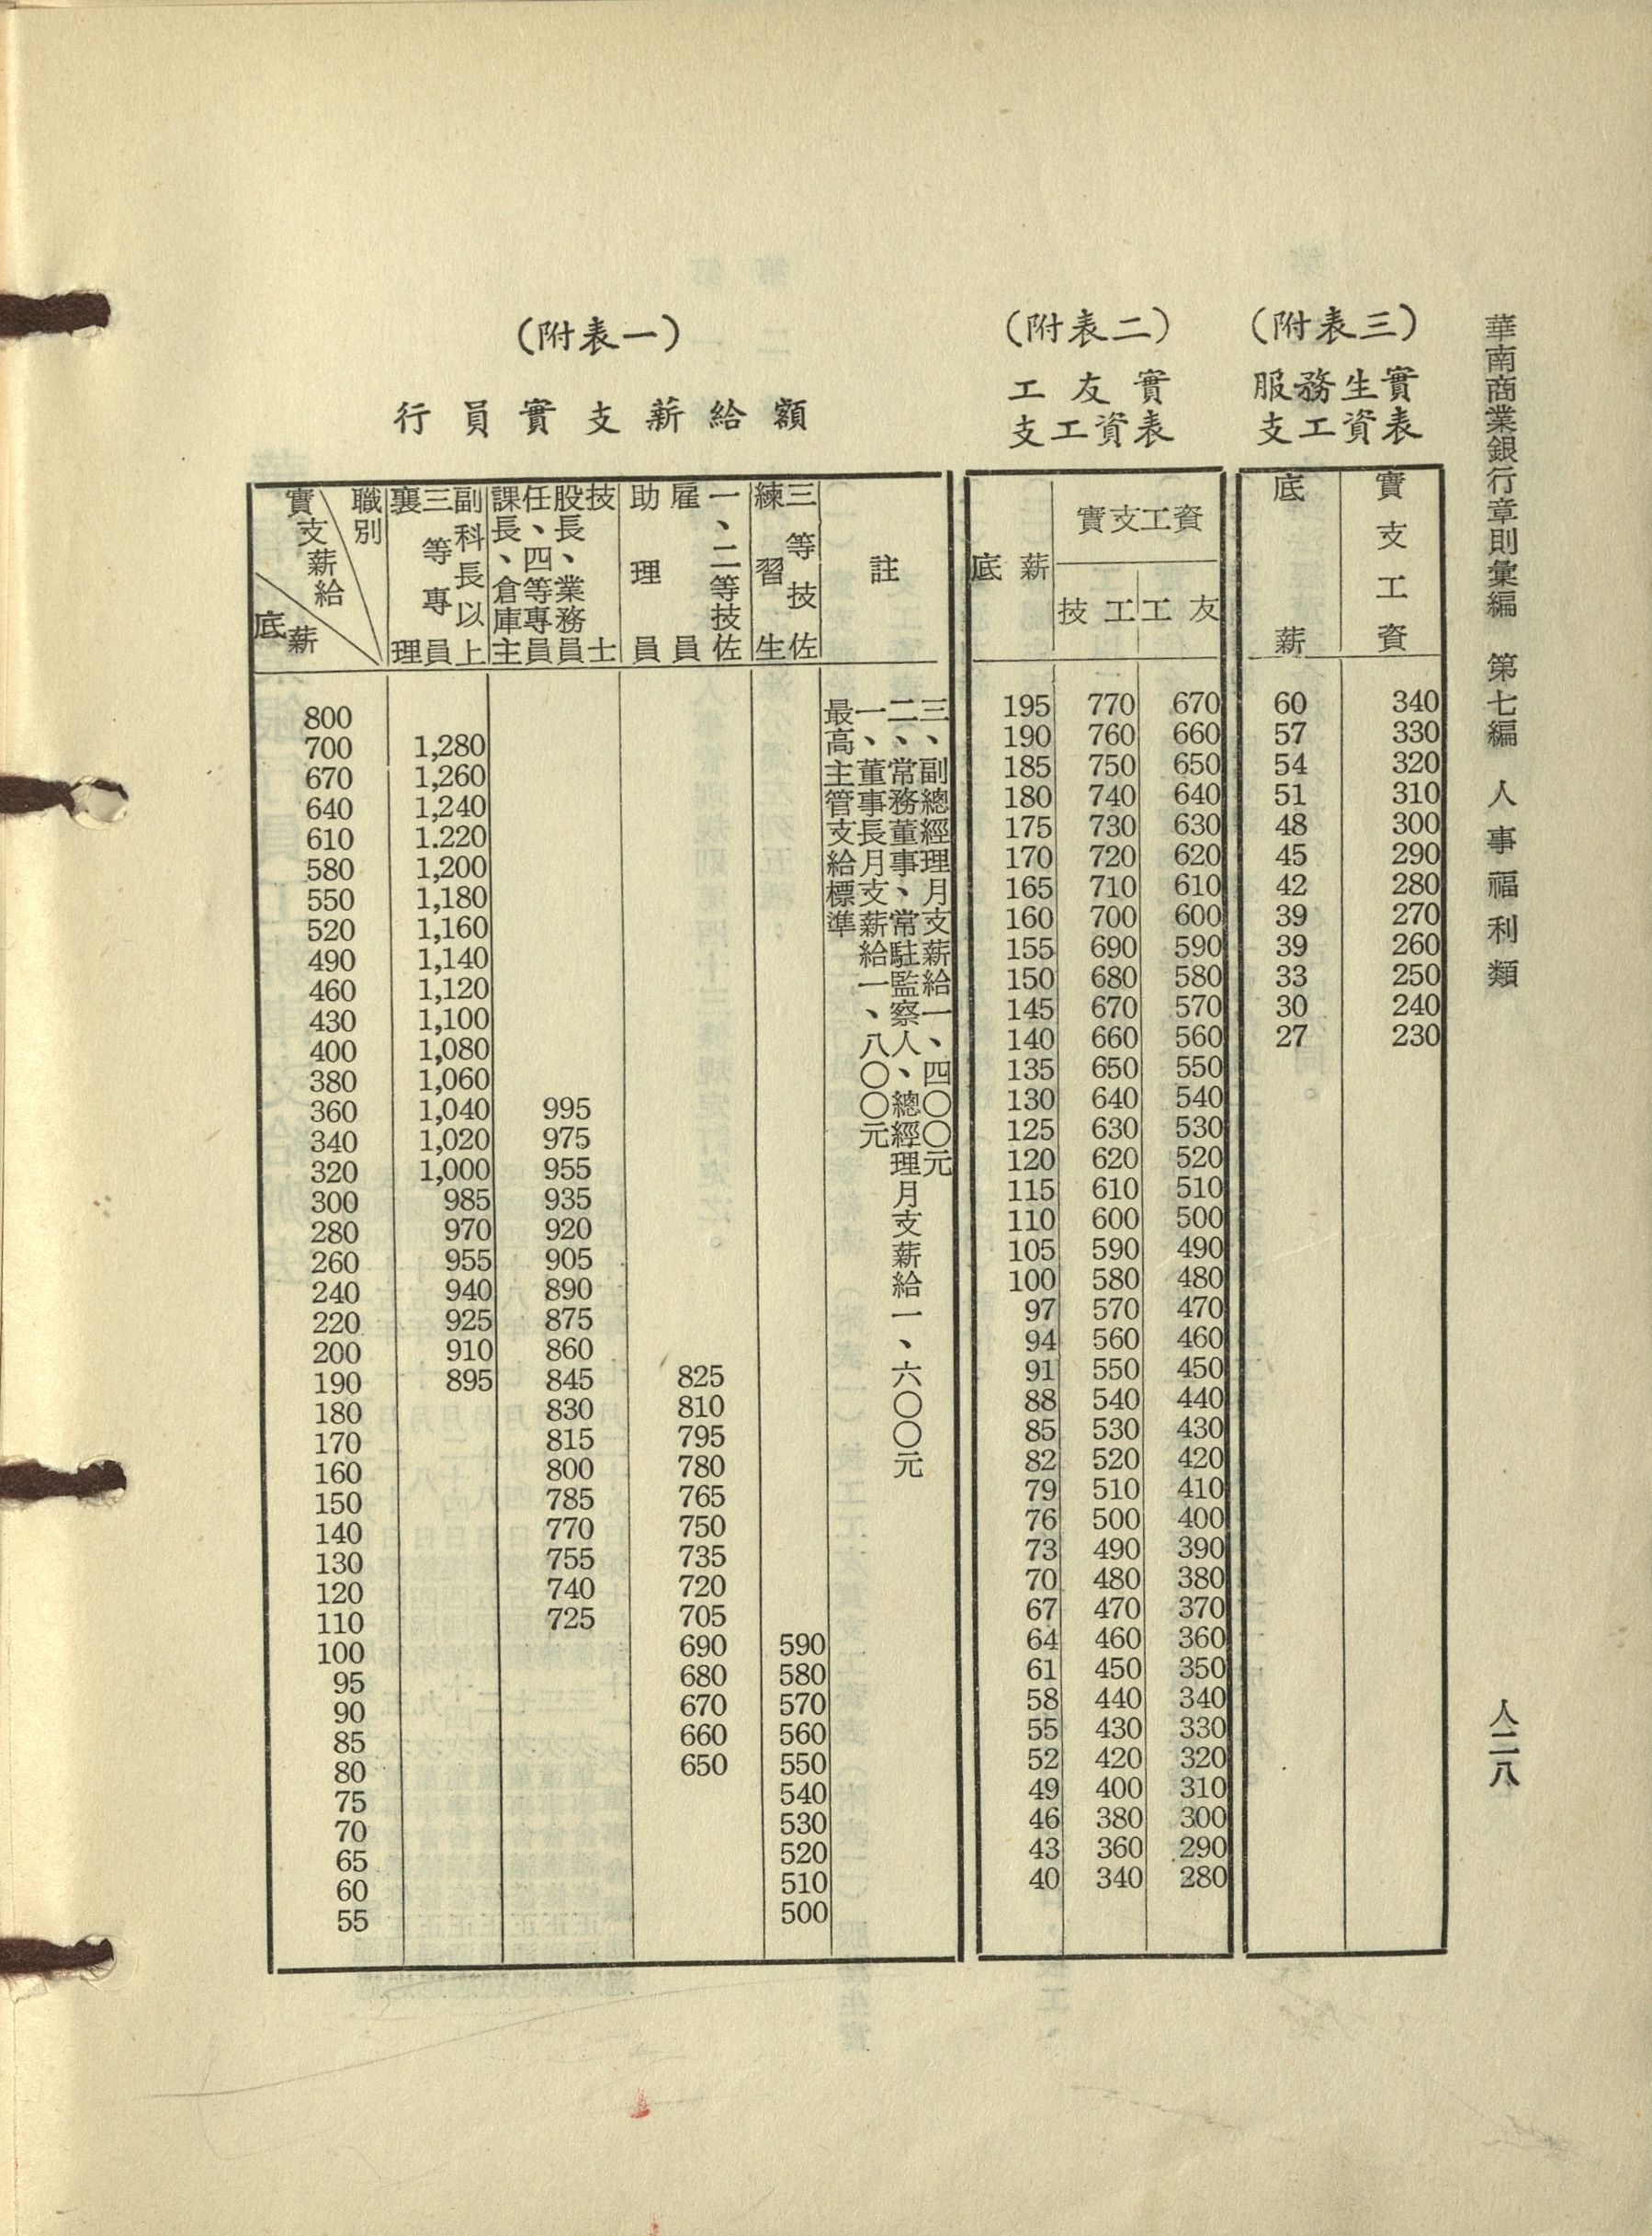 華南商業銀行章則彙編 第七編 人事福利類
人二八
（附表一）
行員實支薪給額
職別
實支薪給
底薪
副科長以上
三等專員
襄理
技士
股長、業務員
任、四等專員
課長、倉庫主
一、二等技佐
雇員
助理員
三等技佐
練習生
註
800
700 1,280
670 1,260
640 1,240
610 1.220
580 1,200
550 1,180
520 1,160
490 1,140
460 1,120
430 1,100
400 1,080
380 1,060
360 1,040 995
340 1,020 975
320 1,000 955
300 985 935
280 970 920
260 955 905
240 940 890
220 925 875
200 910 860
190 895 845 825
180 830 810
170 815 795
160 800 780
150 785 765
140 770 750
130 755 735
120 740 720
110 725 705
100 690 590
95 680 580
90 670 570
85 660 560
80 650 550
75 540
70 530
65 520
60 510
55 500
最高主管支給標準
一、董事長月支薪給一、八〇〇元
二、常務董事、常駐監察人、總經理月支薪給一、六〇〇元
三、副總經理月支薪給一、四〇〇元
（附表二）
工友實
支工資表
底薪
實支工資
技工 工友
195 770 670
190 760 660
185 750 650
180 740 640
175 730 630
170 720 620
165 710 610
160 700 600
155 690 590
150 680 580
145 670 570
140 660 560
135 650 550
130 640 540
125 630 530
120 620 520
115 610 510
110 600 500
105 590 490
100 580 480
97 570 470
94 560 460
91 550 450
88 540 440
85 530 430
82 520 420
79 510 410
76 500 400
73 490 390
70 480 380
67 470 370
64 460 360
61 450 350
58 440 340
55 430 330
52 420 320
49 400 310
46 380 300
43 360 290
40 340 280
（附表三）
服務生實
支工資表
底薪 實支工資
60 340
57 330
54 320
51 310
48 300
45 290
42 280
39 270
39 260
33 250
30 240
27 230